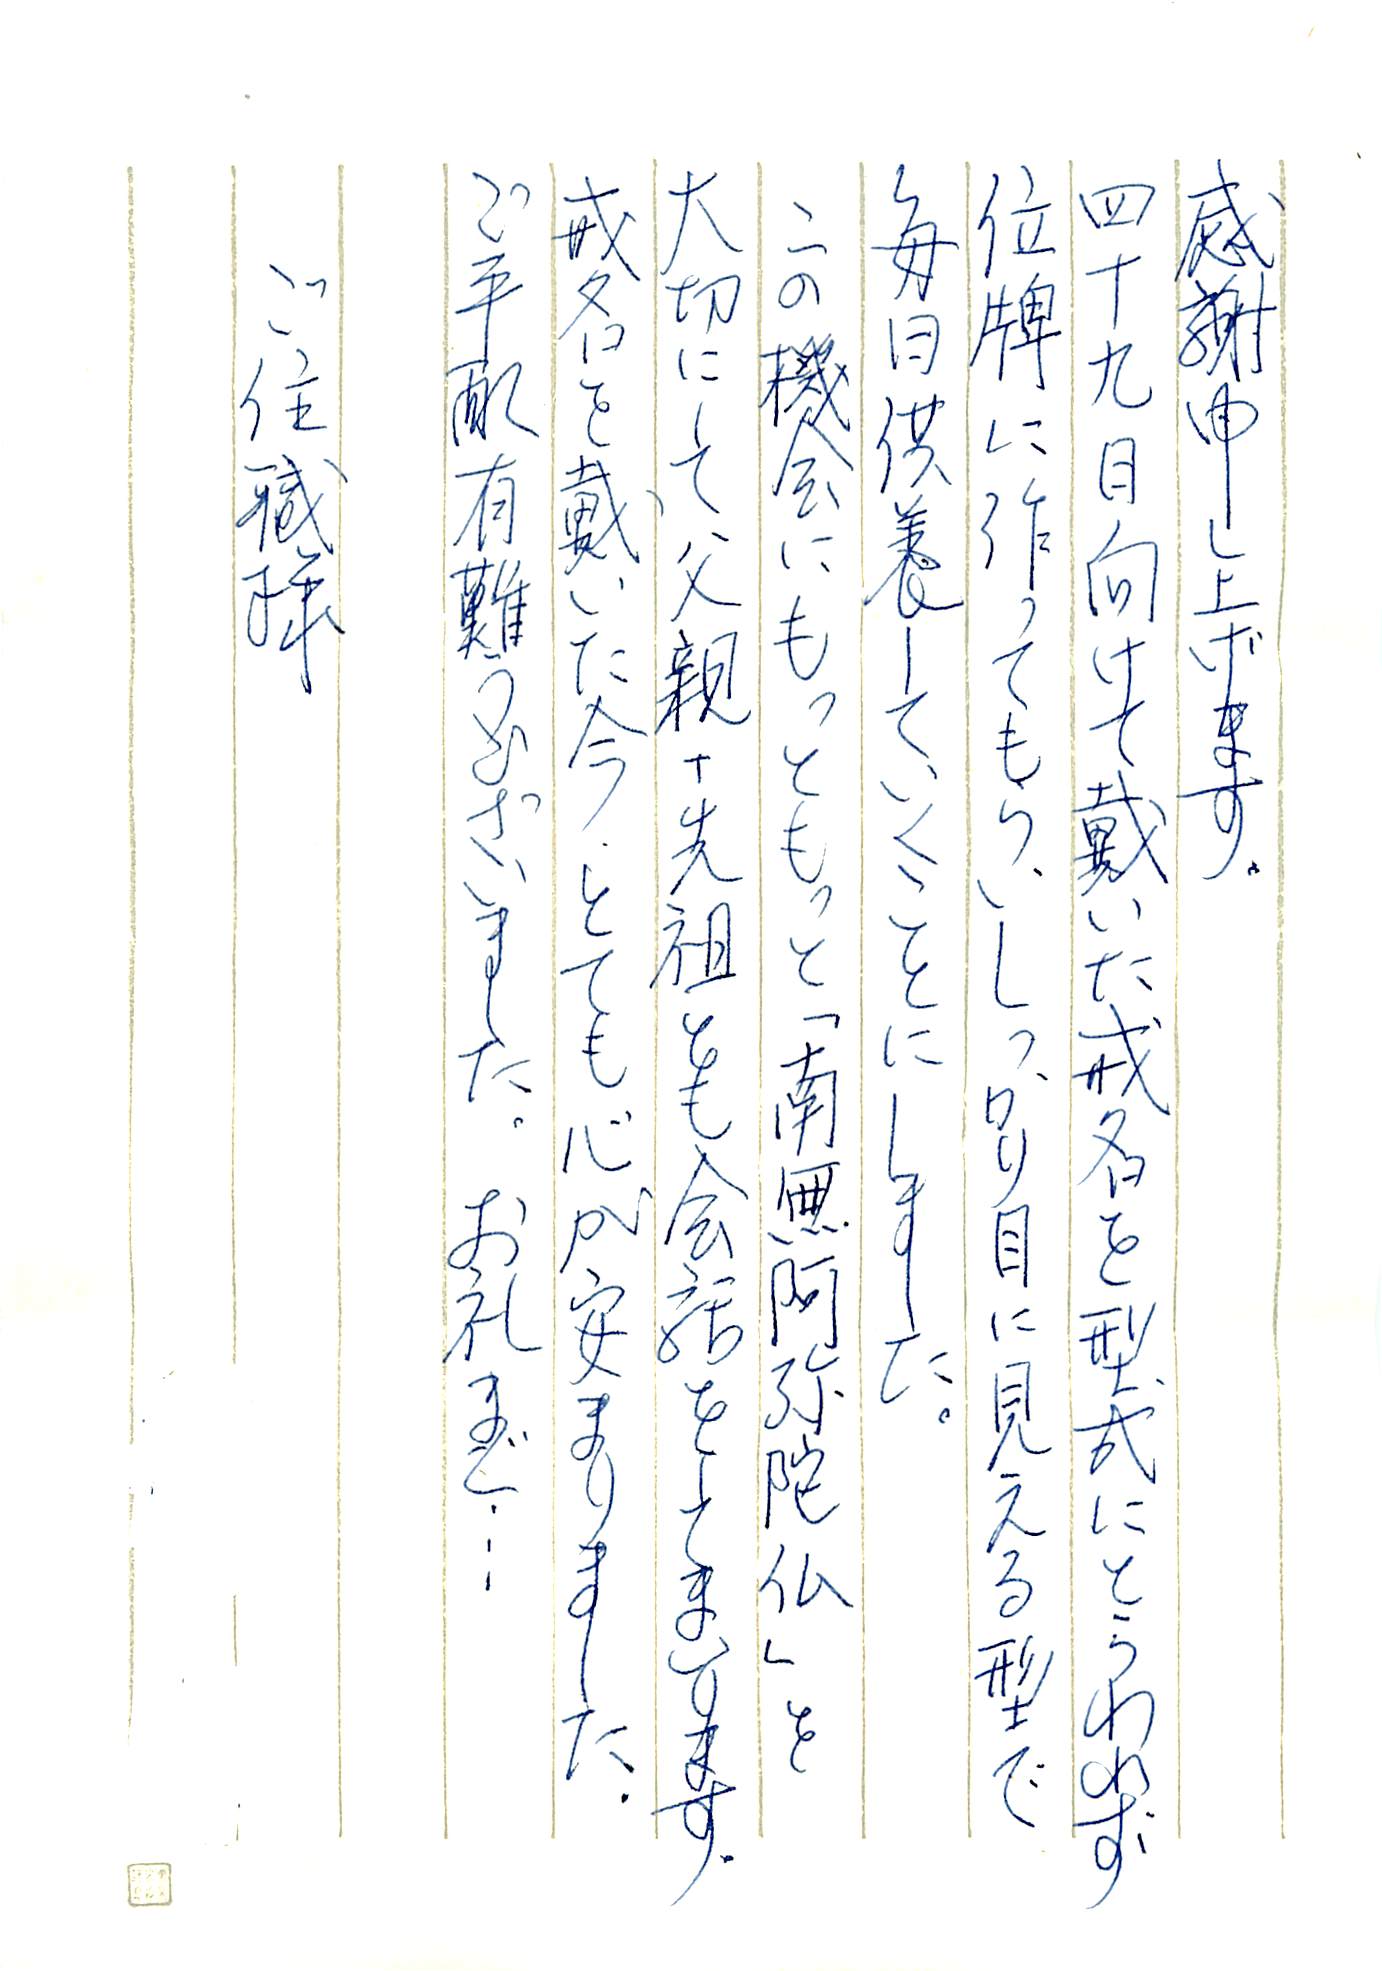 感謝申し上げます。
四十九日向けて戴いた戒名を型式にとらわれず
位牌に作ってもらいしっかり目に見える型で
毎日供養していくことにしました。
この機会にもっともっと「南無阿弥陀仏」を
大切にして父親+先祖とも会話をしてまいります。
戒名を戴いた今、とても心が安まりました。
ご手配有難うございました。お礼まで…
ご住職様